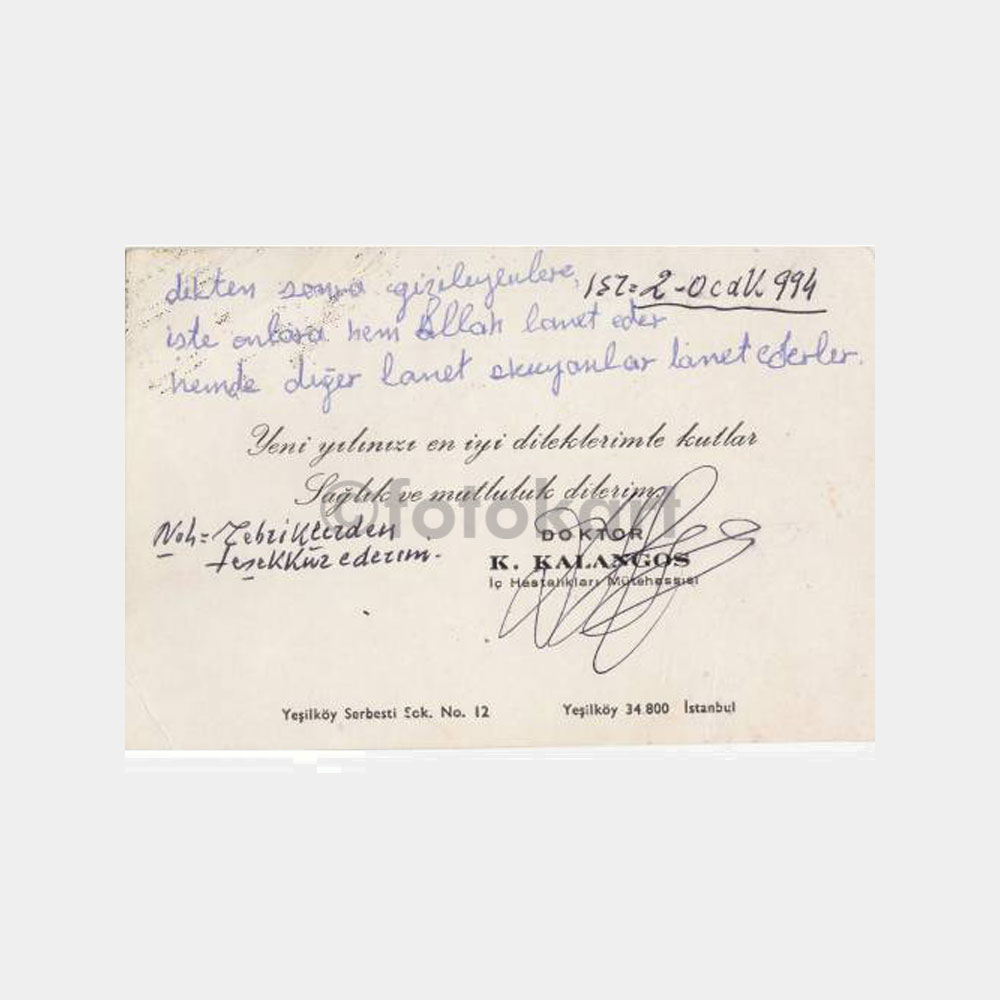 dikten sonra gizileyenlere,
İST= 2-Ocak 994
işte onlara hem Allah lanet eder
hemde diğer lanet okuyanlar lanet ederler.
Yeni yılınızı en iyi dileklerimle kutlar
Sağlık ve mutluluk dilerim.
©fotokart
Not= Tebriklerden
teşekkür ederim.
DOKTOR
K. KALANGOS
İç Hastalıkları Mütehassısı
Yeşilköy Serbesti Sok. No. 12 Yeşilköy 34 800 İstanbul